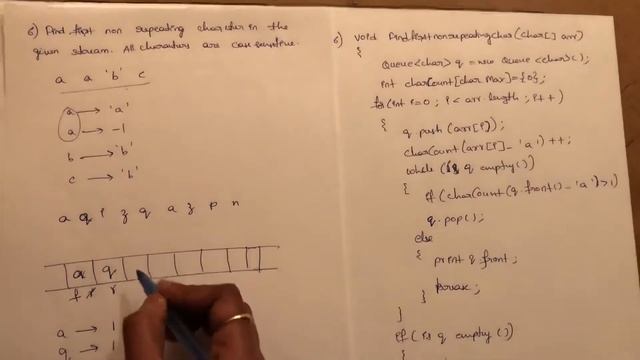 6) Find first non repeating character in the
given stream. All characters are case sensitive.
a a 'b' c
a → 'a'
a → -1
b → 'b'
c → 'b'
a q i z q a z p n
a q
f r r
a → 1
q → 1
6) void findfirstnonrepeatingchar(char[] arr)
{
Queue<char> q = new Queue <char>();
int charCount[char Max]={0};
for(int i=0 ; i < arr.length ; i++)
{
q.push(arr[i]);
charCount(arr[i]-'a')++;
while ( q empty())
{
if(charCount(q.front()-'a')>1)
q.pop();
else
{
print q.front;
break;
}
}
if( is q empty ()
{